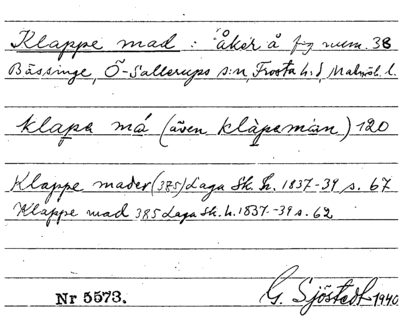 Klappe mad : åker å fig num. 38
Bässinge, Ö-Sallerups s:n, Frosta h:d, Malmöh. l.
klapa má (även klàpəmàn) 120
Klappe mader (385) Laga Sk. h. 1837-39 s. 67
Klappe mad 385 Laga Sk. h. 1837-39 s. 62
Nr 5573. G. Sjöstedt 1940